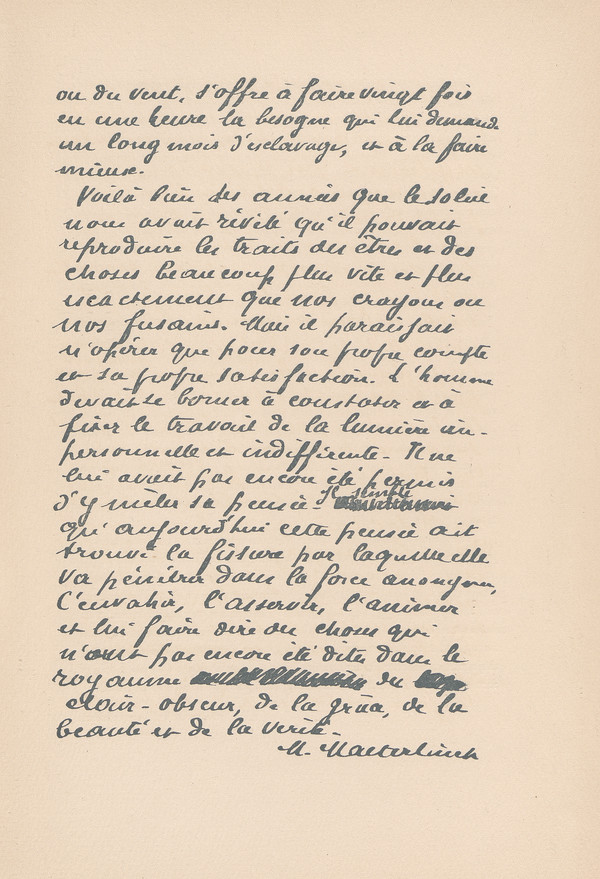 ou du vent, s'offre à faire vingt fois
en une heure la besogne qui lui demande
un long mois d'esclavage, et à la faire
mieux.
Voilà bien des années que le soleil
nous avait révélé qu'il pouvait
reproduire les traits des êtres et des
choses beaucoup plus vite et plus
exactement que nos crayons ou
nos fusains. Mais il paraissait
n'opérer que pour son propre compte
et sa propre satisfaction. L'homme
devait se borner à constater et à
fixer le travail de la lumière im-
personnelle et indifférente. Il ne
lui avait pas encore été permis
d'y mêler sa pensée. Il semble
qu'aujourd'hui cette pensée ait
trouvé la fissure par laquelle elle
va pénétrer dans la force anonyme,
l'envahir, l'asservir, l'animer
et lui faire dire des choses qui
n'ont pas encore été dites dans le
royaume du
clair-obscur, de la grâce, de la
beauté et de la vérité.
M. Maeterlinck